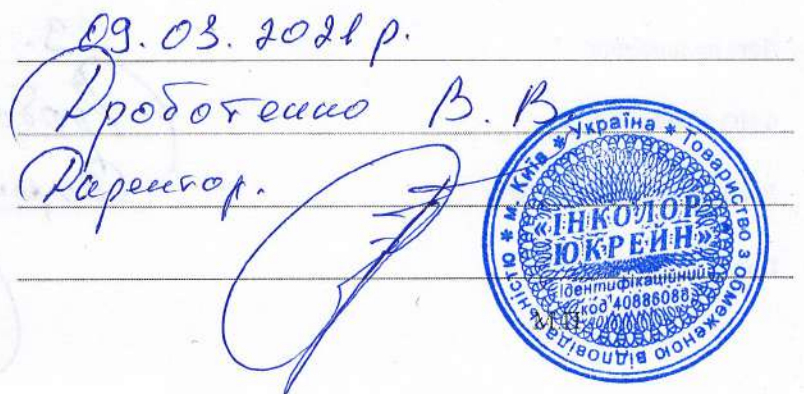 09.03.2021 р.
Дроботенко В. В.
Директор.
* м. Київ * Україна * Товариство з обмеженою відповідальністю
«ІНКОЛОР
ЮКРЕЙН»
Ідентифікаційний
код 40886088
М.П.